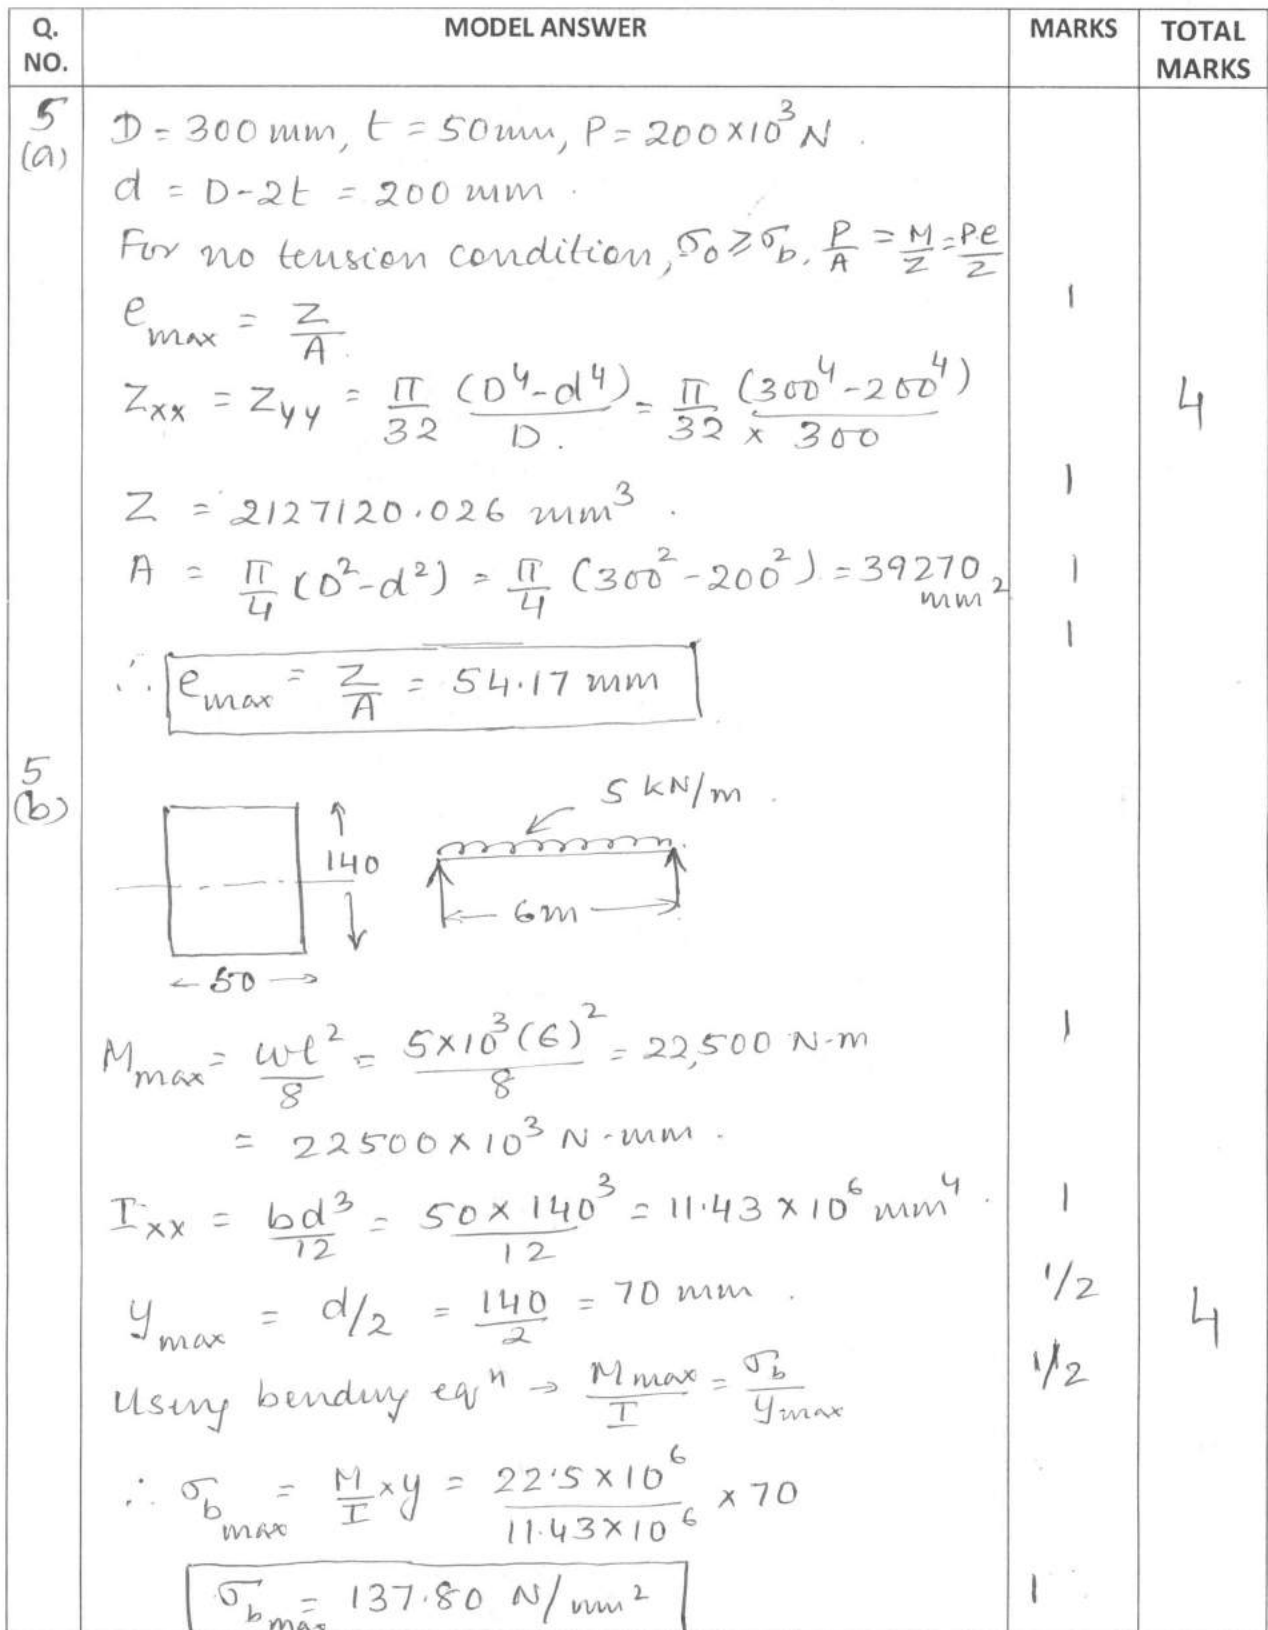 Q. NO. MODEL ANSWER MARKS TOTAL MARKS
5 (a) D = 300 mm, t = 50 mm, P = 200 × 10³ N.
d = D-2t = 200 mm.
For no tension condition, σ₀ ≥ σb. P/A = M/Z = P.e/Z
e max = Z/A. 1
Zxx = Zyy = π/32 (D⁴-d⁴)/D. = π/32 × (300⁴-200⁴)/300 4
Z = 2127120.026 mm³. 1
A = π/4 (D²-d²) = π/4 (300²-200²) = 39270 mm² 1
∴ e max = Z/A = 54.17 mm 1
5 (b)
5 kN/m.
140
6m
50
M max = wl²/8 = 5×10³(6)²/8 = 22,500 N-m 1
= 22500 × 10³ N-mm.
Ixx = bd³/12 = 50 × 140³/12 = 11.43 × 10⁶ mm⁴. 1
y max = d/2 = 140/2 = 70 mm. 1/2
4
Using bending eqⁿ → M max/I = σb/y max 1/2
∴ σb max = M/I × y = 22.5 × 10⁶/11.43 × 10⁶ × 70
σb max = 137.80 N/mm² 1